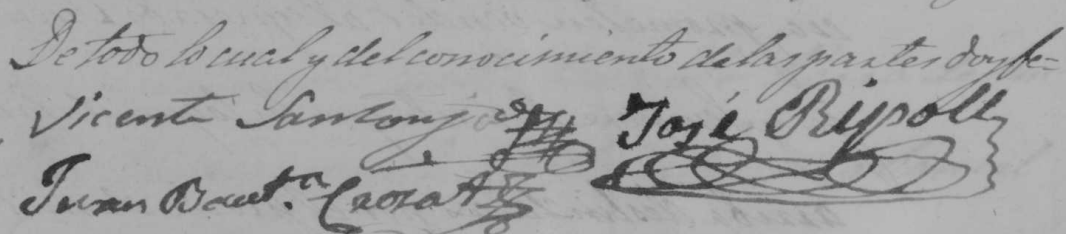 De todo lo cual y del conocimiento de las partes doy fe=
Vicente Santonja José Ripoll
Juan Baut.ª Crozat